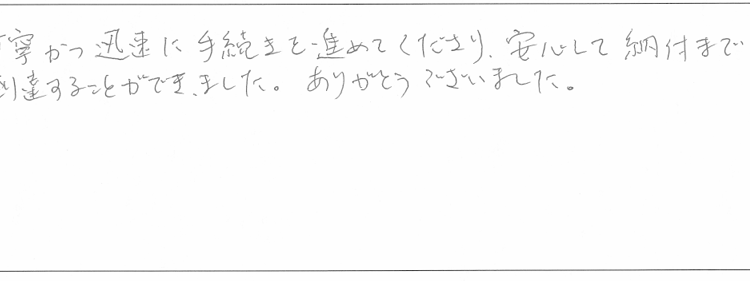 丁寧かつ迅速に手続きを進めてくださり、安心して納付まで
到達することができました。ありがとうございました。